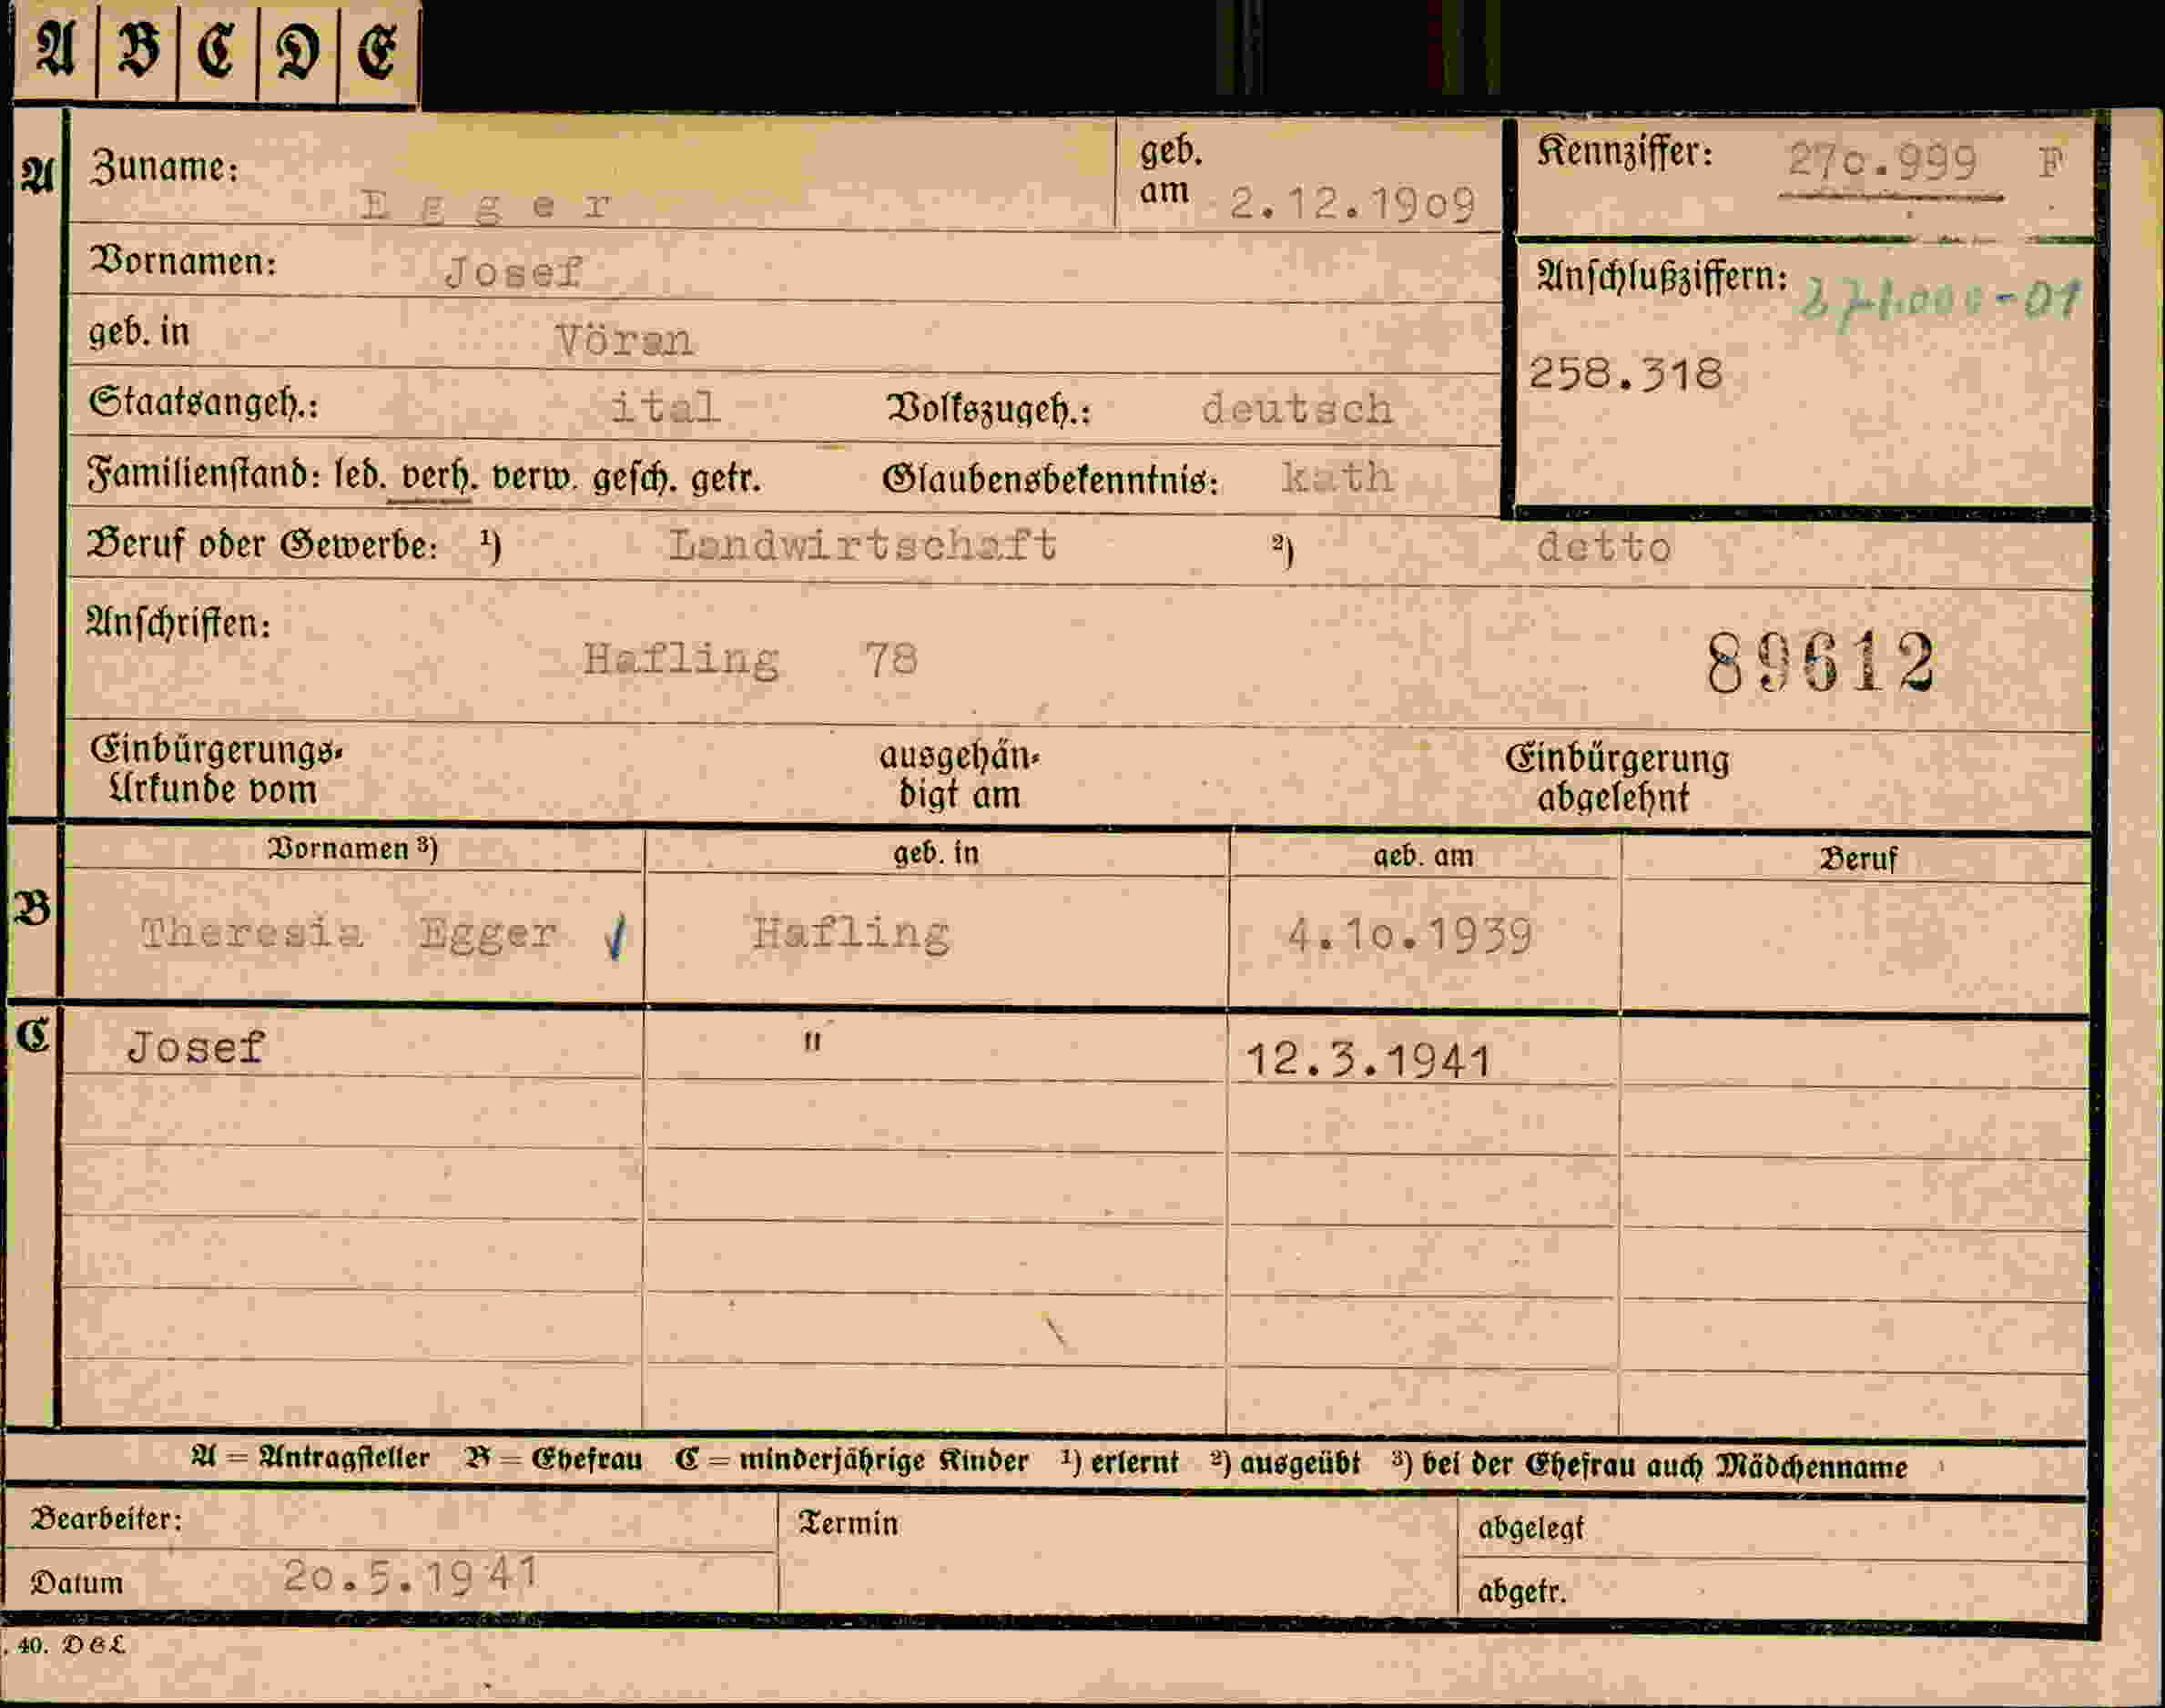 A B C D E
A Zuname: Egger geb. am 2.12.1909 Kennziffer: 270.999 F
Vornamen: Josef Anschlußziffern: 271.000-01
geb. in Vöran 258.318
Staatsangeh.: ital Volkszugeh.: deutsch
Familienstand: led. verh. verw. gesch. getr. Glaubensbekenntnis: kath
Beruf oder Gewerbe: ¹) Landwirtschaft ²) detto
Anschriften: Hafling 78 89612
Einbürgerungs- ausgehän- Einbürgerung
Urkunde vom digt am abgelehnt
Vornamen ³) geb. in geb. am Beruf
B Theresia Egger Hafling 4.10.1939
C Josef " 12.3.1941
A = Antragsteller B = Ehefrau C = minderjährige Kinder ¹) erlernt ²) ausgeübt ³) bei der Ehefrau auch Mädchenname
Bearbeiter: Termin abgelegt
Datum 20.5.1941 abgetr.
. 40. DGL